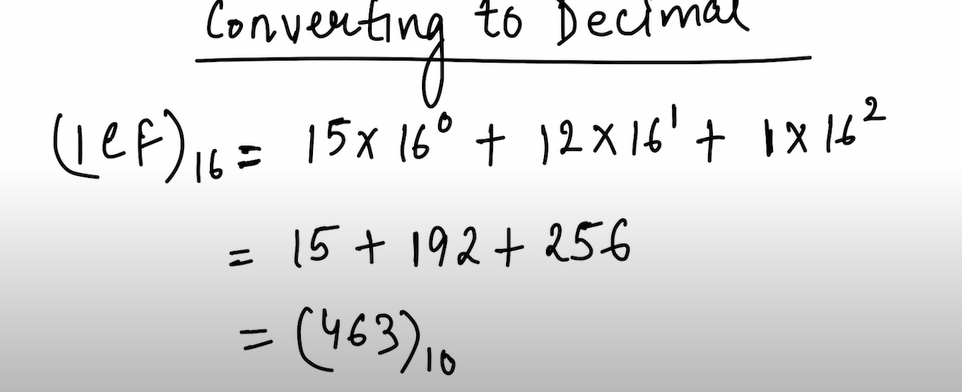 Converting to Decimal
(1CF)₁₆ = 15 x 16⁰ + 12 x 16¹ + 1 x 16²
= 15 + 192 + 256
= (463)₁₀